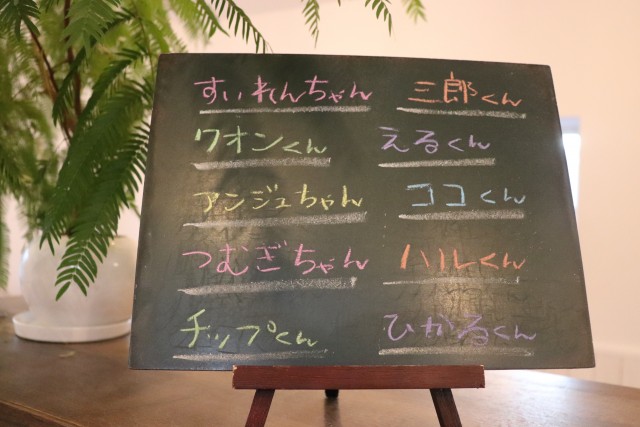 すいれんちゃん 三郎くん
クオンくん えるくん
アンジュちゃん ココくん
つむぎちゃん ハルくん
チップくん ひかるくん